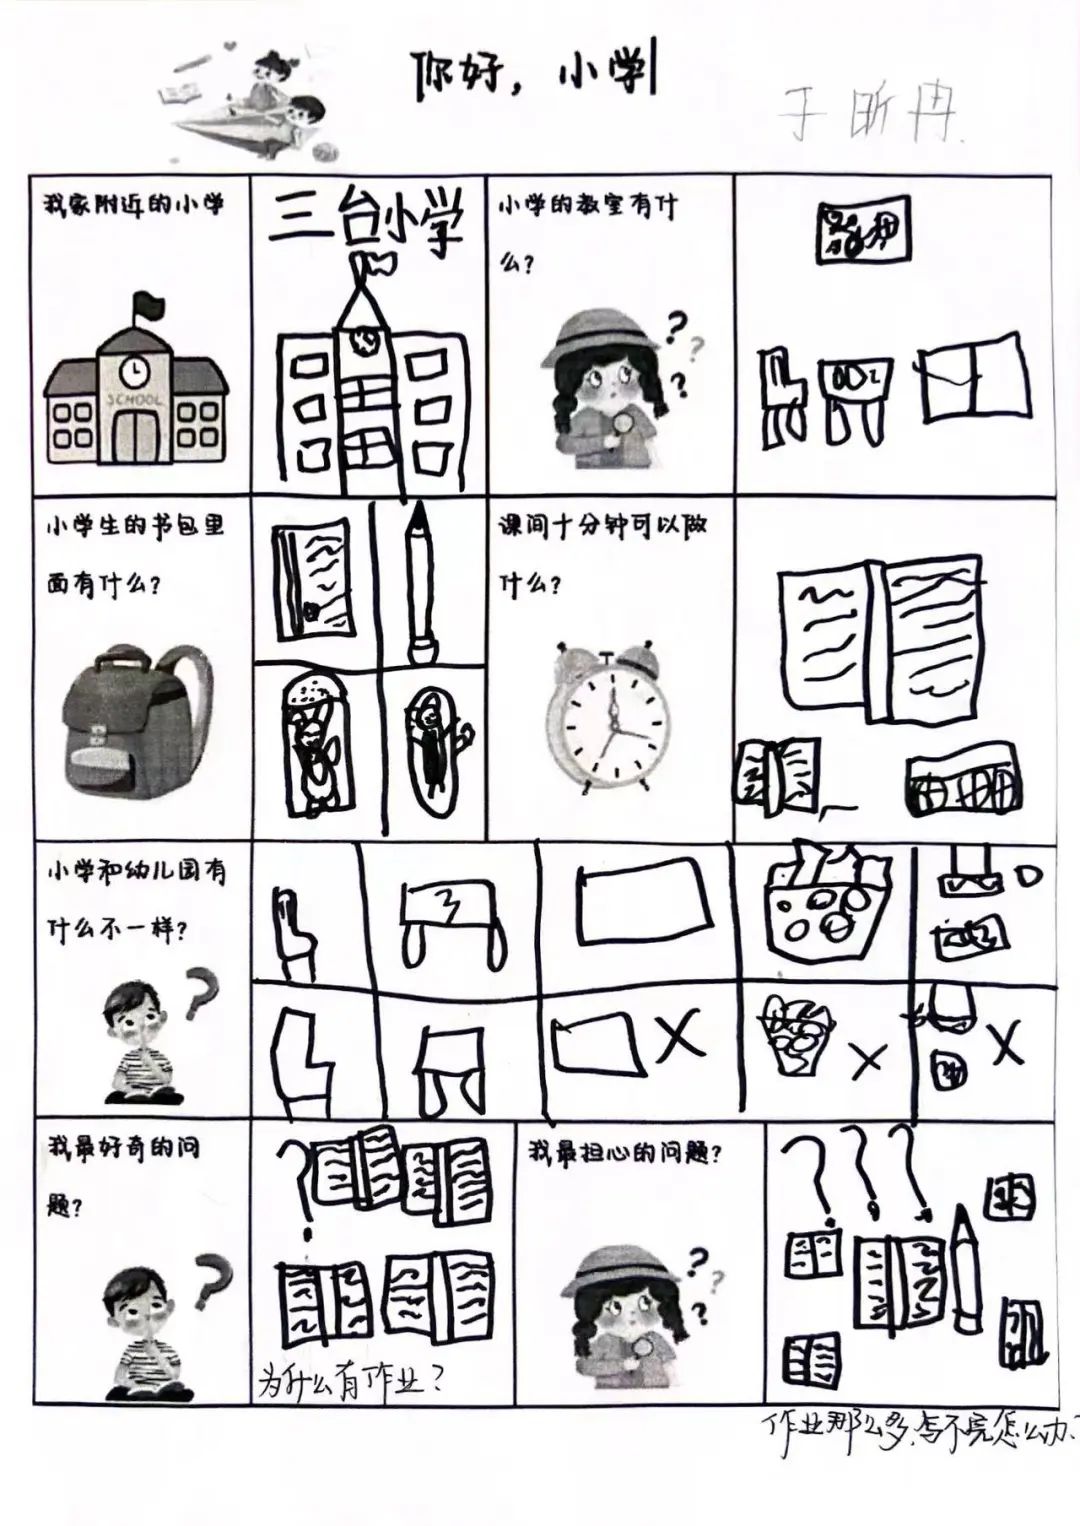 你好，小学
于昕冉
我家附近的小学
SCHOOL
三台小学
小学的教室有什
么？
小学生的书包里
面有什么？
课间十分钟可以做
什么？
小学和幼儿园有
什么不一样？
我最好奇的问
题？
为什么有作业？
我最担心的问题？
作业那么多，写不完怎么办？